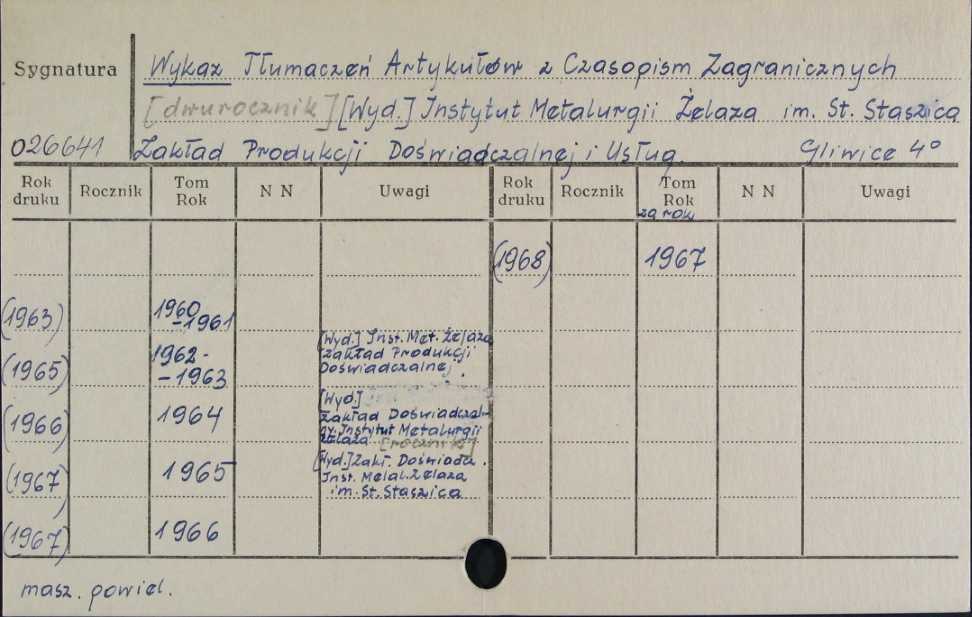 Sygnatura
Wykaz Tłumaczeń Artykułów z Czasopism Zagranicznych
[dwurocznik] [Wyd.] Instytut Metalurgii Żelaza im. St. Staszica
026641 Zakład Produkcji Doświadczalnej i Usług. Gliwice 4°
Rok druku Rocznik Tom Rok N N Uwagi Rok druku Rocznik Tom Rok za rok N N Uwagi
(1968) 1967
(1963) 1960-1961
(1965) 1962-
-1963
[Wyd.] Inst. Met. Żelaza
Zakład Produkcji
Doświadczalnej.
(1966) 1964
[Wyd.]
Zakład Doświadczal-
ny. Instytut Metalurgii
Żelaza [rocznik]
(1967) 1965
[Wyd.] Zakł. Doświadcz.
Inst. Metal. Żelaza
im. St. Staszica
(1967) 1966
masz. powiel.